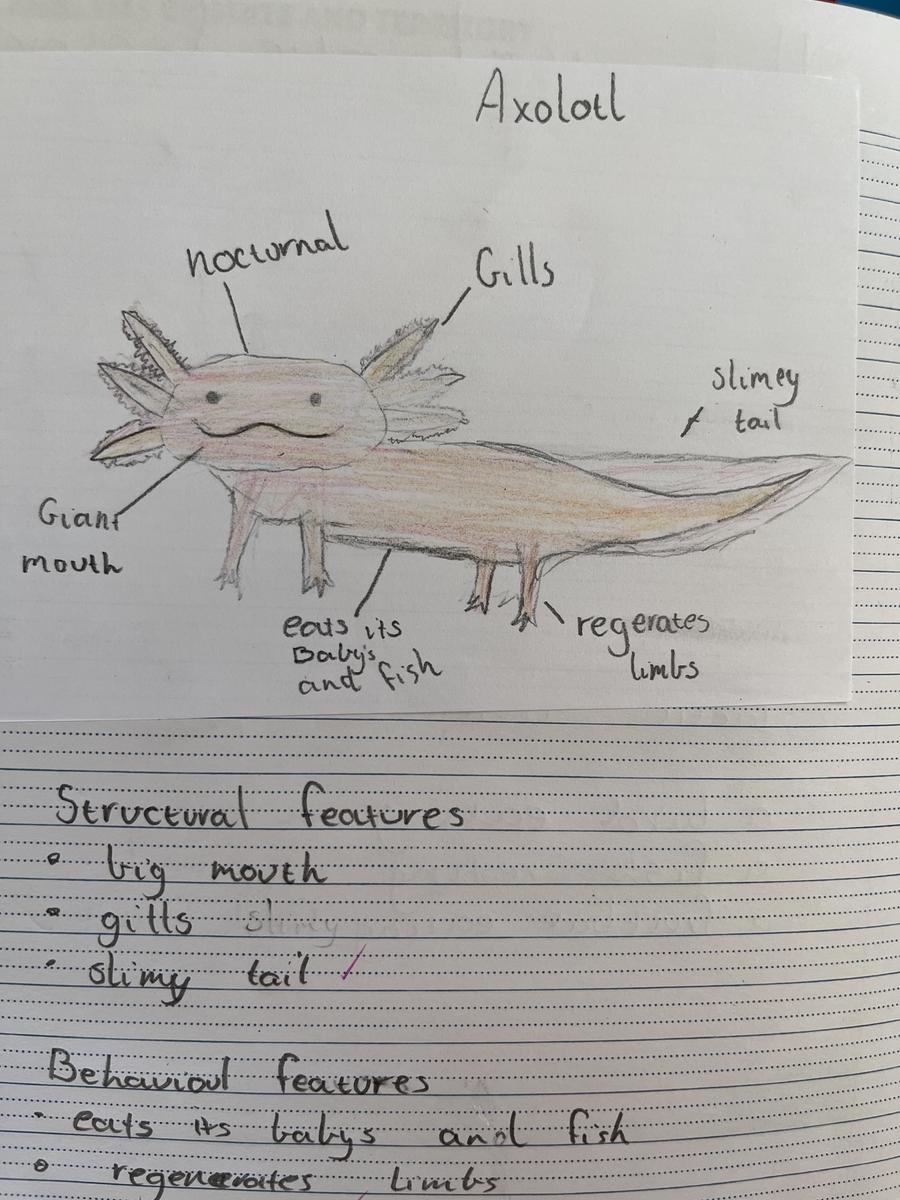 Axolotl
nocturnal
Gills
slimey
tail
Giant
mouth
eats its
Baby's
and fish
regerates
limbs
Structural features
• big mouth
• gills slimy
• slimy tail ✓
Behavioul features
• eats its babys and fish
• regenerates limbs